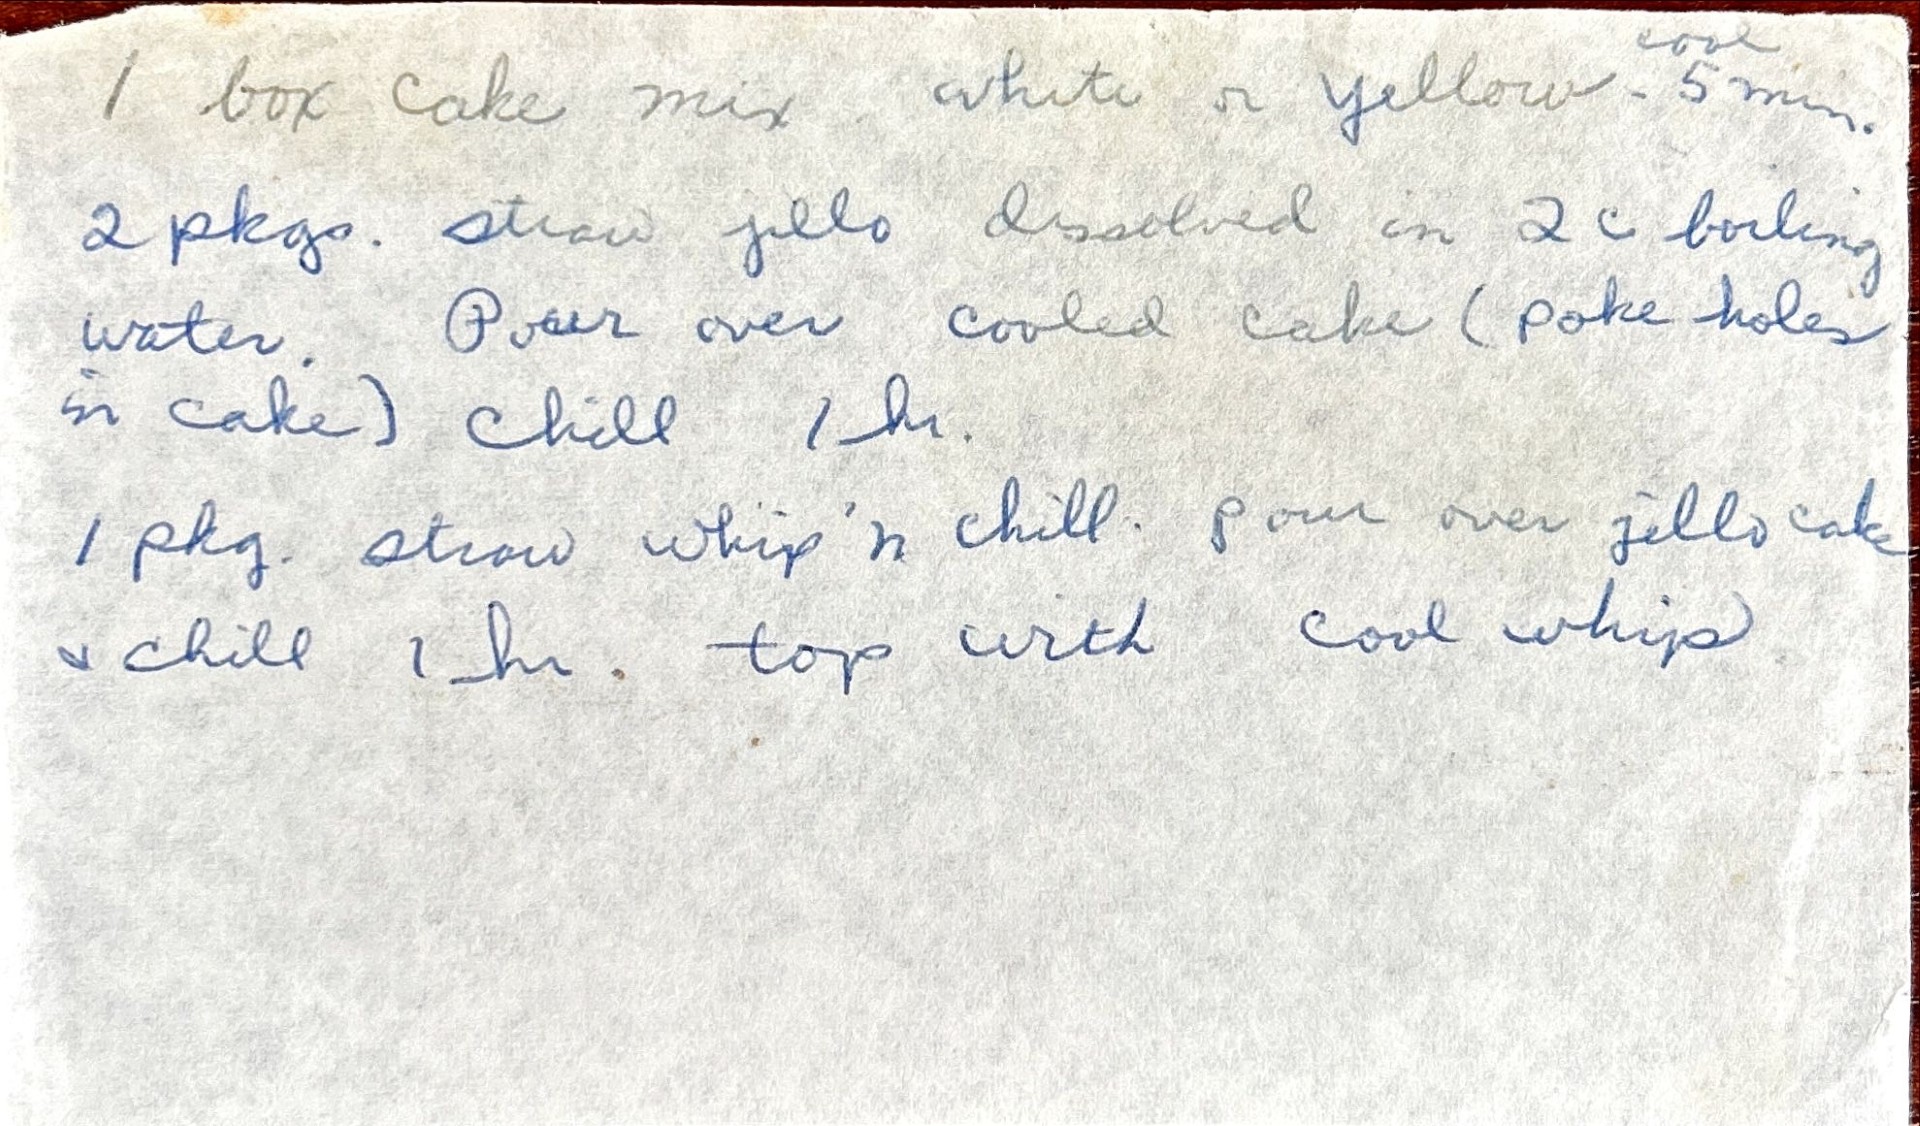 1 box cake mix white or yellow - cool 5 min.
2 pkgs. straw jello dissolved in 2 c boiling
water. Pour over cooled cake (poke holes
in cake) chill 1 hr.
1 pkg. straw whip'n chill. pour over jello cake
& chill 1 hr. top with cool whip